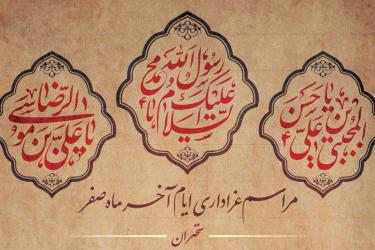 یا حسن بن علی المجتبی
السلام علیک یا محمد رسول الله
یا علی بن موسی الرضا
مراسم عزاداری ایام آخر ماه صفر
تهران